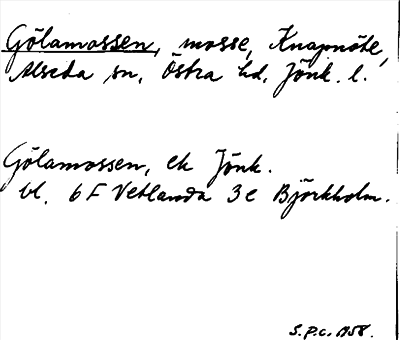 Gölamossen, mosse, Knapnöte,
Alseda sn. Östra hd. Jönk. l.
Gölamossen, ek Jönk.
bl. 6 F Vetlanda 3e Björkholm.
S.P.C. 1958.